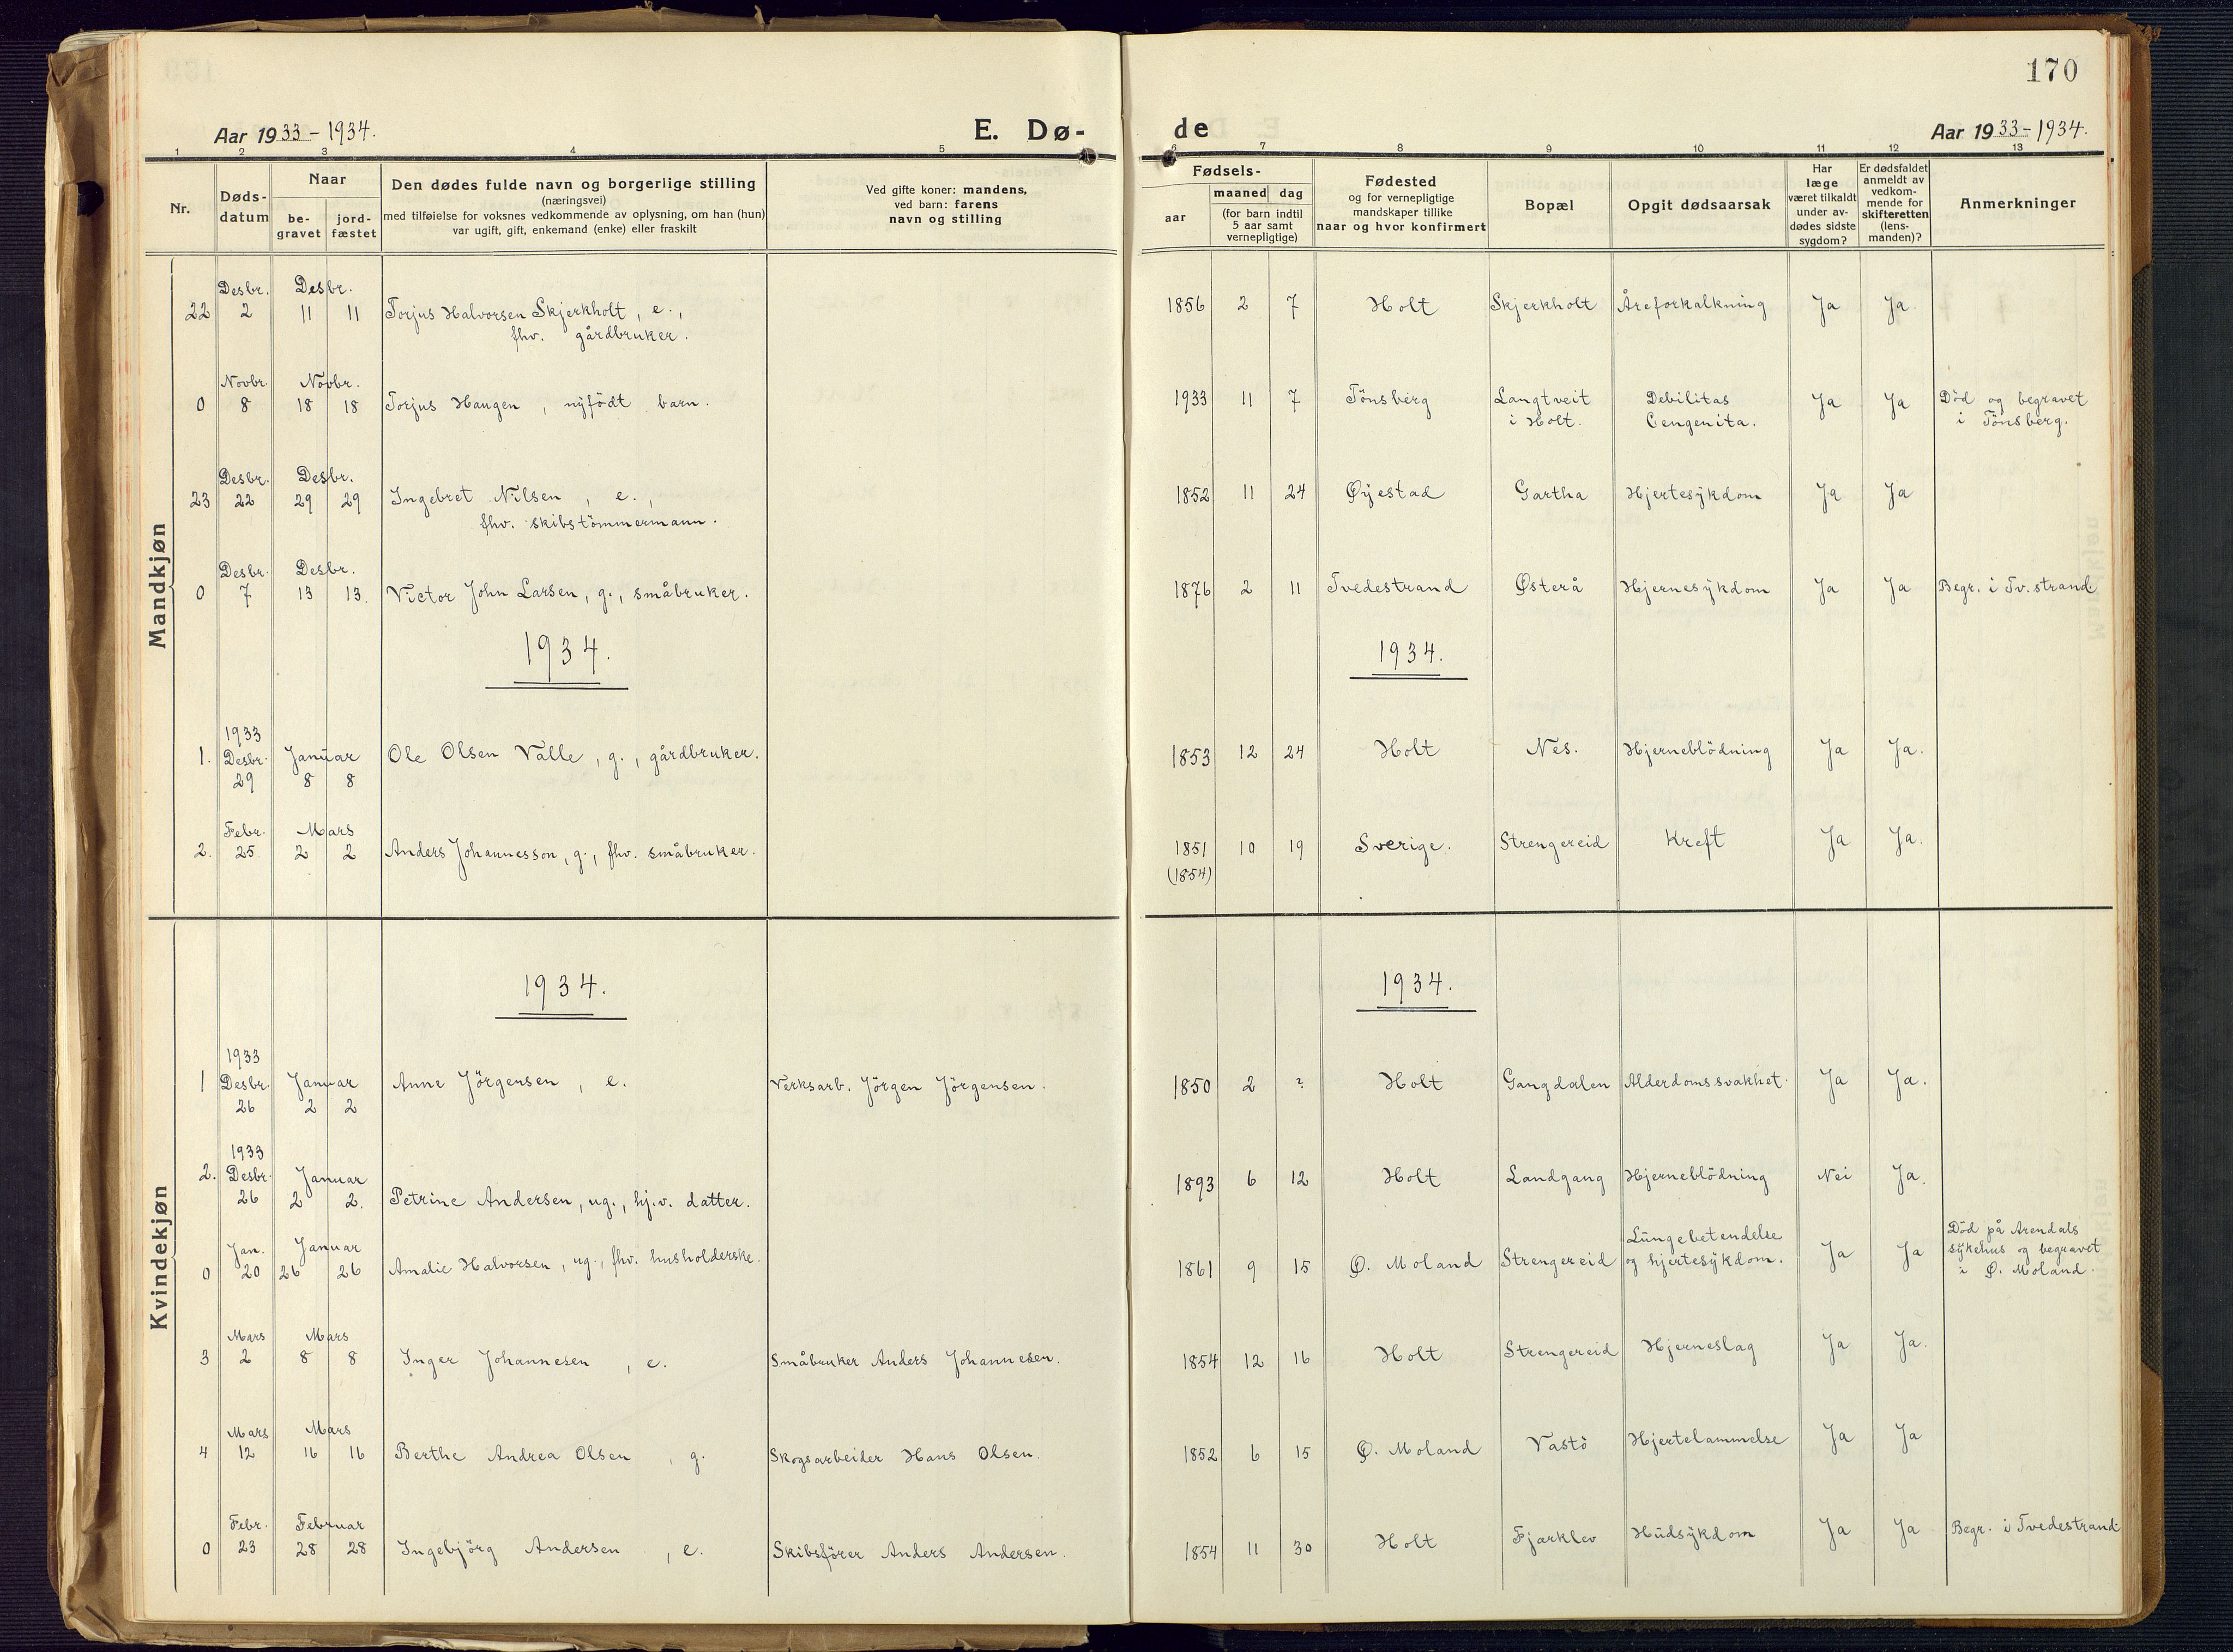 170
Aar 1933-1934.
E. Dø-
de
Aar 1933-1934.
1 2 3 4 5 6 7 8 9 10 11 12 13
Nr.
Døds-
datum
Naar
be-
gravet
jord-
fæstet
Den dødes fulde navn og borgerlige stilling
(næringsvei)
med tilføielse for voksnes vedkommende av oplysning, om han (hun)
var ugift, gift, enkemand (enke) eller fraskilt
Ved gifte koner: mandens,
ved barn: farens
navn og stilling
Fødsels-
aar
maaned dag
(for barn indtil
5 aar samt
vernepligtige)
Fødested
og for vernepligtige
mandskaper tillike
naar og hvor konfirmert
Bopæl
Opgit dødsaarsak
Har
læge
været tilkaldt
under av-
dødes sidste
sygdom?
Er dødsfaldet
anmeldt av
vedkom-
mende for
skifteretten
(lens-
manden)?
Anmerkninger
Mandkjøn
Desbr. Desbr.
22 2 11 11 Torjus Halvorsen Skjerkholt, e., 1856 2 7 Holt Skjerkholt Åreforkalkning Ja Ja.
fhv. gårdbruker.
Novbr. Novbr.
0 8 18 18 Torjus Haugen, nyfödt barn. 1933 11 7 Tönsberg Langtveit Debilitas Ja Ja Död og begravet
i Holt. Cengenita. i Tönsberg.
Desbr. Desbr.
23 22 29 29 Ingebret Nilsen, e., 1852 11 24 Øyestad Gartha Hjertesykdom Ja Ja
fhv. skibstömmermann.
Desbr. Desbr.
0 7 13 13. Victor John Larsen, g., småbruker. 1876 2 11 Tvedestrand Østerå Hjernesykdom Ja Ja Begr. i Tv.strand
1934. 1934.
1933
1. Desbr. Januar Ole Olsen Valle, g., gårdbruker. 1853 12 24 Holt Nes. Hjerneblödning Ja Ja.
29 8 8
Febr. Mars
2. 25 2 2 Anders Johannesson, g., fhv. småbruker. 1851 10 19 Sverige. Strengereid Kreft Ja Ja.
(1854)
Kvindekjøn
1934. 1934.
1933
1 Desbr. Januar Anne Jörgensen, e. Verksarb. Jörgen Jörgensen. 1850 2 ? Holt Gangdalen Alderdomssvakhet. Ja Ja.
26 2 2
1933
2. Desbr. Januar
26 2 2. Petrine Andersen, ug., hj.v. datter. 1893 6 12 Holt Landgang Hjerneblödning Nei Ja.
Jan. Januar Lungebetendelse Död på Arendals
0 20 26 26 Amalie Halvorsen, ug., fhv. husholderske. 1861 9 15 Ø. Moland Strengereid og hjertesykdom. Ja Ja sykehus og begravet
i Ø. Moland.
Mars Mars
3 2 8 8 Inger Johannesen, e. Småbruker Anders Johannesen. 1854 12 16 Holt Strengereid Hjerneslag Ja Ja.
Mars Mars
4 12 16 16 Berthe Andrea Olsen, g. Skogsarbeider Hans Olsen. 1852 6 15 Ø. Moland Vastö Hjertelammelse Ja Ja
Febr. Februar
0 23 28 28 Ingebjörg Andersen, e. Skibsförer Anders Andersen. 1854 11 30 Holt Fjærklev Hudsykdom Ja Ja Begr. i Tvedestrand